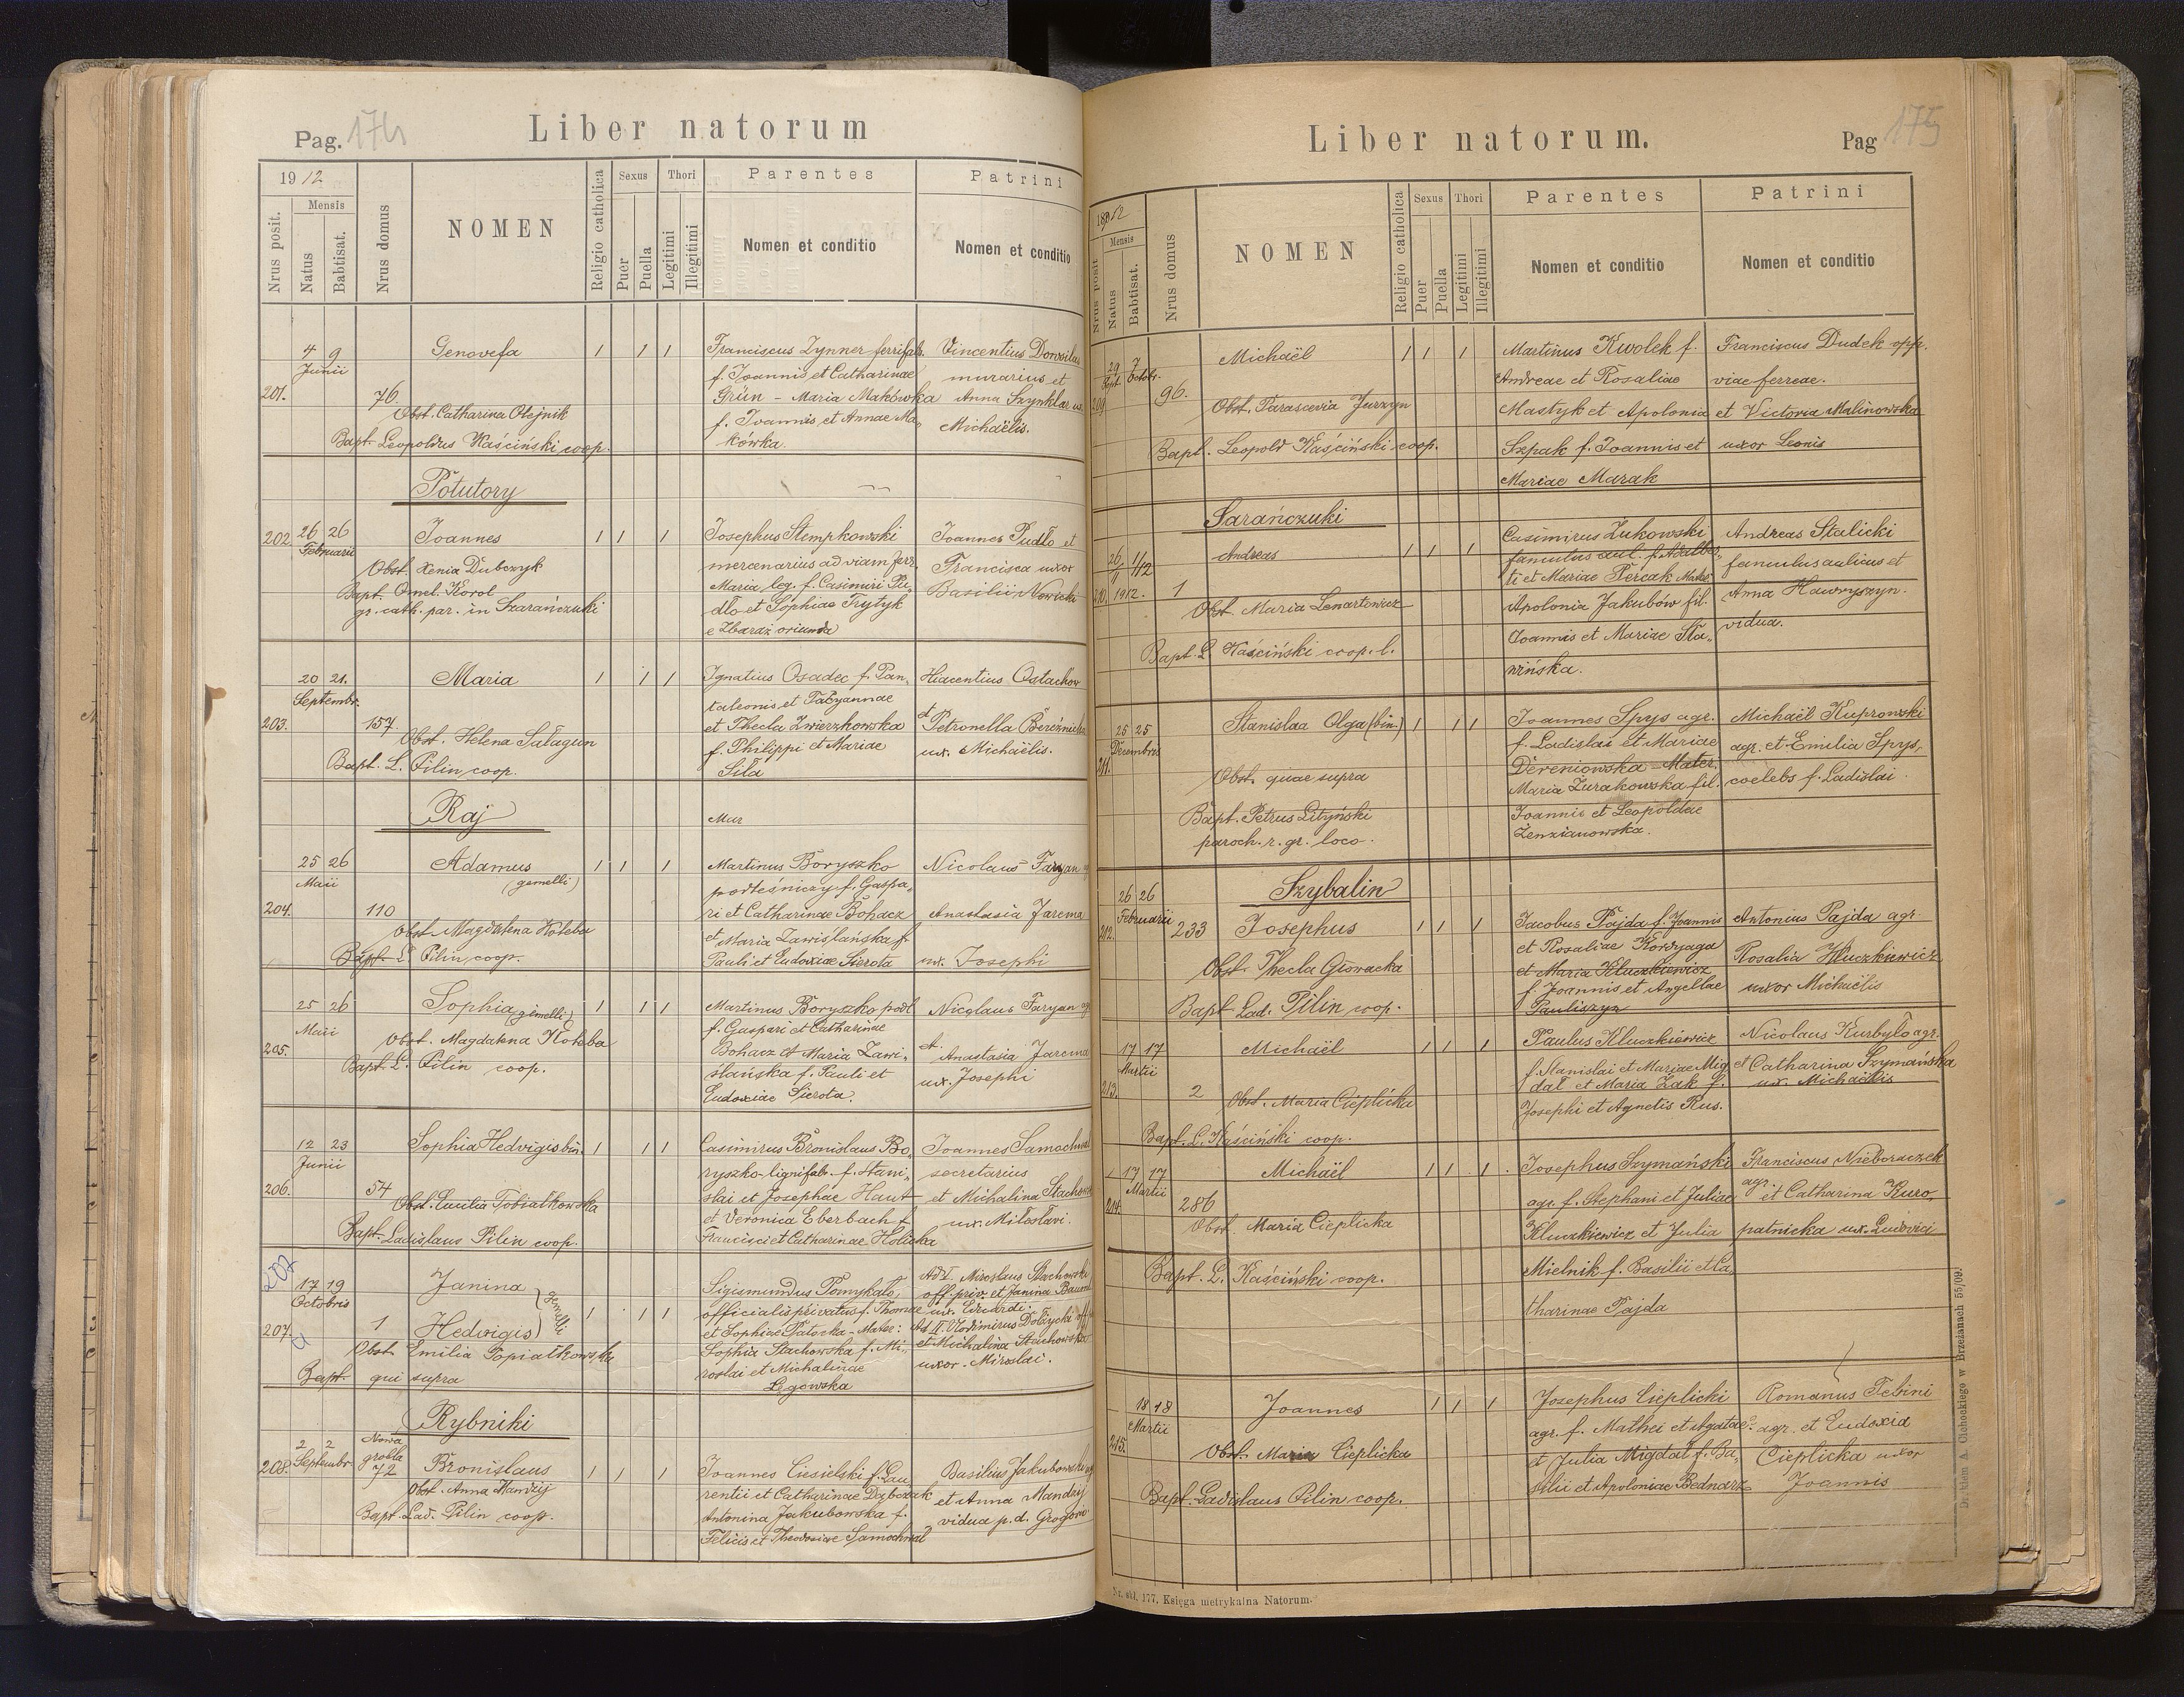 Pag. 174
Liber natorum
1912
Nrus posit.
Mensis
Natus
Babtisat.
Nrus domus
NOMEN
Religio catholica
Sexus
Puer
Puella
Thori
Legitimi
Illegitimi
Parentes
Nomen et conditio
Patrini
Nomen et conditio
201.
4 9
Junii
76.
Genovefa
1 1 1
Obst. Catharina Olejnik
Bapt. Leopoldus Kaściński coop.
Franciscus Zynner ferrifab.
f. Joannis et Catharinae
Grün - Maria Makówka
f. Joannis et Annae Ma-
kówka.
Vincentius
murarius et
Anna Szynklar ux.
Michaëlis.
Potutory
202.
26 26
Februarii
Joannes
1 1 1
Obst. Xenia Dubczyk
Bapt. Omel. Korol
gr. cath. par. in Szarańczuki
Josephus Stempkowski
mercenarius ad viam ferr.
Maria leg. f. Casimiri Pu-
dło et Sophiae Trytyk
e Zbaraż oriunda
Joannes Pudło et
Francisca uxor
Basilii Nowicki
203.
20 21.
Septembr.
157.
Maria
1 1 1
Obst. Helena Sałagun
Bapt. L. Pilin coop.
Ignatius Osadec f. Pan-
taleonis et Fabyannae
et Thecla Zwierzkowska
f. Philippi et Mariae
Siła
Hiacentius Ostachow
et Petronella
ux. Michaëlis.
Raj
Mar
204.
25 26
Maii
110
Adamus
(gemelli)
1 1 1
Obst. Magdalena Koteba
Bapt. L. Pilin coop.
Martinus Boryszko
podleśniczy f. Gaspa-
ri et Catharinae Bohacz
et Maria Zawiślańska f.
Pauli et Eudoxiae Sierota
Nicolaus Faryan
Anastasia Jarema
ux. Josephi
205.
25 26
Maii
Sophia (gemelli)
1 1 1
Obst. Magdalena Koteba
Bapt. L. Pilin coop.
Martinus Boryszko podl
f. Gaspari et Catharinae
Bohacz et Maria Zawi-
ślańska f. Pauli et
Eudoxiae Sierota.
Nicolaus Faryan
et. Anastasia Jarema
ux. Josephi
206.
12 23
Junii
54
Sophia Hedvigis bin.
1 1 1
Obst. Emilia
Bapt. Ladislaus Pilin coop.
Casimirus Bronislaus Bo-
ryszko lignifabr. f. Stani-
slai et Josephae Haut
et Veronica Eberbach f.
Francisci et Catharinae Holicka
Joannes
secretarius
et Michalina
ux. Miłoslavi.
207
207.
17 19
Octobris
1
Janina
Hedvigis
gemelli
1 1 1
Obst. Emilia Popiatkowska
Bapt. qui supra
Sigismundus Pomykało,
officialis privatus f. Thomae
et Sophiae Patocka - Mater:
Sophia Stachowska f. Mi-
roslai et Michalinae
Legowska
Ad I. Miroslaus Stachowski
off. priv. et Janina
ux. Eduardi.
Ad II. Vlodimirus Dobrycki off.
et Michalina Stachowska
uxor. Miroslai.
Rybniki
208.
2 2
Septembr.
Nowa
grobla
72
Bronislaus
1 1 1
Obst. Anna Mandzij
Bapt. Lad. Pilin coop.
Joannes Ciesielski f. Lau-
rentii et Catharinae Dąbczak
Antonina Jakubowska f.
Felicis et Theodosiae Samochwał
Basilius Jakubowski
et Anna Mandzij
vidua p. d. Gregorii
Liber natorum.
Pag 175
1912
Nrus posit
Mensis
Natus
Babtisat.
Nrus domus
NOMEN
Religio catholica
Sexus
Puer
Puella
Thori
Legitimi
Illegitimi
Parentes
Nomen et conditio
Patrini
Nomen et conditio
209.
29 7
Sept. Octobr.
96.
Michaël
1 1 1
Obst. Parascevia Jurzyn
Bapt. Leopold Kaściński coop.
Martinus Kwolek f.
Andreae et Rosaliae
Mastyk et Apolonia
Szpak f. Joannis et
Mariae Marak
Franciscus Dudek opp.
viae ferreae.
et Victoria Malinowska
uxor Leonis
Sarańczuki
210.
26/11 1/12
1912.
1
Andreas
1 1 1
Obst. Maria Lenartowicz
Bapt. L. Kaściński coop. l.
Casimirus Żukowski
famulus aul. f. Adalber-
ti et Mariae Percak Mater
Apolonia Jakubów fil.
Joannis et Mariae Sła-
wińska.
Andreas Stalicki
famulus aulicus et
Anna Hawryszyn.
vidua.
211.
25 25
Decembris
Stanislaa Olga (bin.)
1 1 1
Obst. quae supra
Bapt. Petrus Lityński
paroch. r. gr. loco.
Joannes Spys agr.
f. Ladislai et Mariae
Dereniowska - Mater.
Maria Żurakowska fil.
Joannis et Leopoldae
Zenzianowska.
Michaël Kuprowski
agr. et Emilia Spys,
coelebs f. Ladislai.
Szybalin
212.
26 26
Februarii
233
Josephus
1 1 1
Obst. Thecla Głowacka
Bapt. Lad. Pilin coop.
Jacobus Pajda f. Joannis
et Rosaliae Kordyaga
et Maria Kluczkiewicz
f. Joannis et Angellae
Pauliszyn
Antonius Pajda agr.
Rosalia Kluczkiewicz
uxor Michaëlis
213.
17 17
Martii
2
Michaël
1 1 1
Obst. Maria Cieplicka
Bapt. L. Kaściński coop.
Paulus Kluczkiewicz
f. Stanislai et Mariae Mig
dal et Maria Żak f.
Josephi et Agnetis Rus.
Nicolaus Kurbyło agr.
et Catharina Szymańska
ux. Michaëlis
214.
17 17
Martii
286
Michaël
1 1 1
Obst. Maria Cieplicka
Bapt. L. Kaściński coop.
Josephus Szymański
agr. f. Stephani et Juliae
Kluczkiewicz et Julia
Mielnik f. Basilii et Ca-
tharinae Pajda
Franciscus Nieboraczek
agr. et Catharina Kuro-
patnicka ux. Ludovici
215.
18 18
Martii
Joannes
1 1 1
Obst. Maria Cieplicka
Bapt. Ladislaus Pilin coop.
Josephus Cieplicki
agr. f. Mathei et Agatae
et Julia Migdal f. Ba-
silii et Apoloniae Bednarz
Romanus
agr. et Eudoxia
Cieplicka uxor
Joannis
Nr. skł. 177. Księga metrykalna Natorum.
Drukiem A. Głuchockiego w Brzeżanach 55/09.